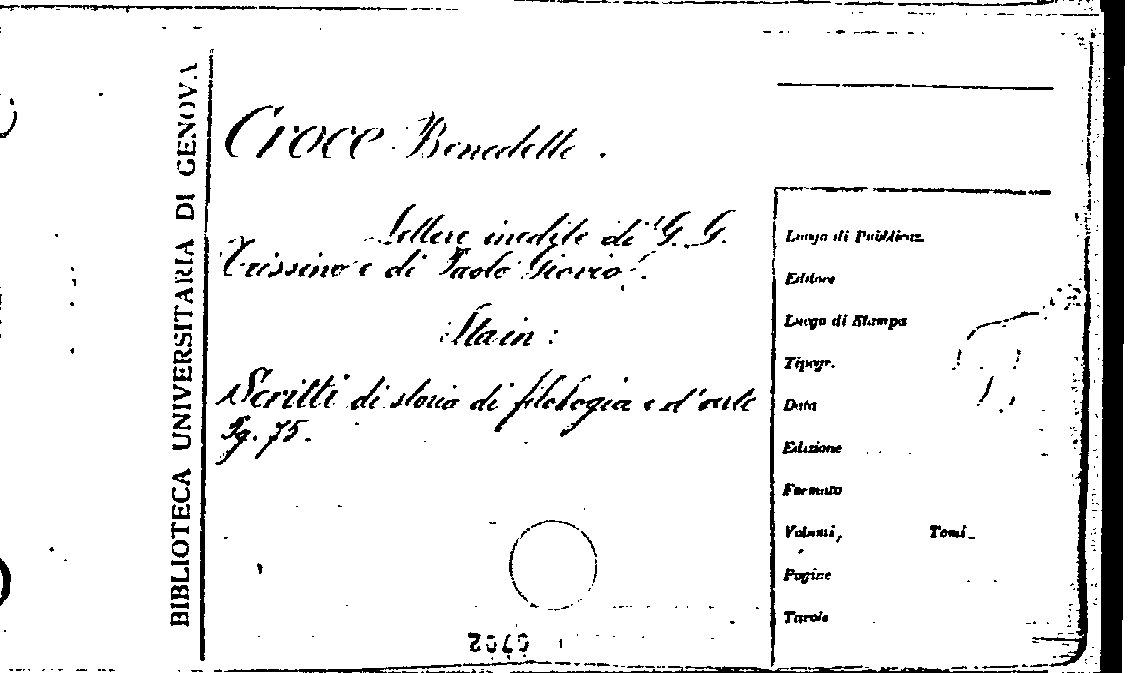 BIBLIOTECA UNIVERSITARIA DI GENOVA
Croce Benedetto.
Lettere inedite di G. G.
Trissino e di Paolo Giovio.
Sta in:
Scritti di storia di filologia e d'arte
Pg. 75.
Luogo di Pubblicaz.
Editore
Luogo di Stampa
Tipogr.
Data
Edizione
Formato
Volumi, Tomi
Pagine
Tavole